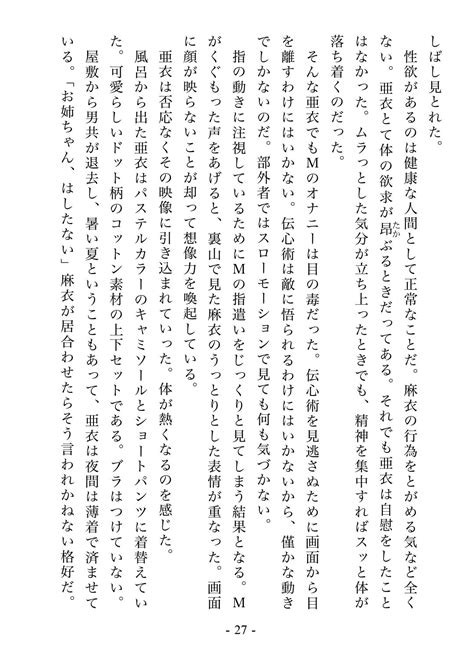 しばし見とれた。
性欲があるのは健康な人間として正常なことだ。麻衣の行為をとがめる気など全く
ない。亜衣とて体の欲求が昂ぶるときだってある。それでも亜衣は自慰をしたこと
たか
はなかった。ムラっとした気分が立ち上ったときでも、精神を集中すればスッと体が
落ち着くのだった。
そんな亜衣でもMのオナニーは目の毒だった。伝心術を見逃さぬために画面から目
を離すわけにはいかない。伝心術は敵に悟られるわけにはいかないから、僅かな動き
でしかないのだ。部外者ではスローモーションで見ても何も気づかない。
指の動きに注視しているためにMの指遣いをじっくりと見てしまう結果となる。M
がくぐもった声をあげると、裏山で見た麻衣のうっとりとした表情が重なった。画面
に顔が映らないことが却って想像力を喚起している。
亜衣は否応なくその映像に引き込まれていった。体が熱くなるのを感じた。
風呂から出た亜衣はパステルカラーのキャミソールとショートパンツに着替えてい
た。可愛らしいドット柄のコットン素材の上下セットである。ブラはつけていない。
屋敷から男共が退去し、暑い夏ということもあって、亜衣は夜間は薄着で済ませて
いる。「お姉ちゃん、はしたない」麻衣が居合わせたらそう言われかねない格好だ。
- 27 -